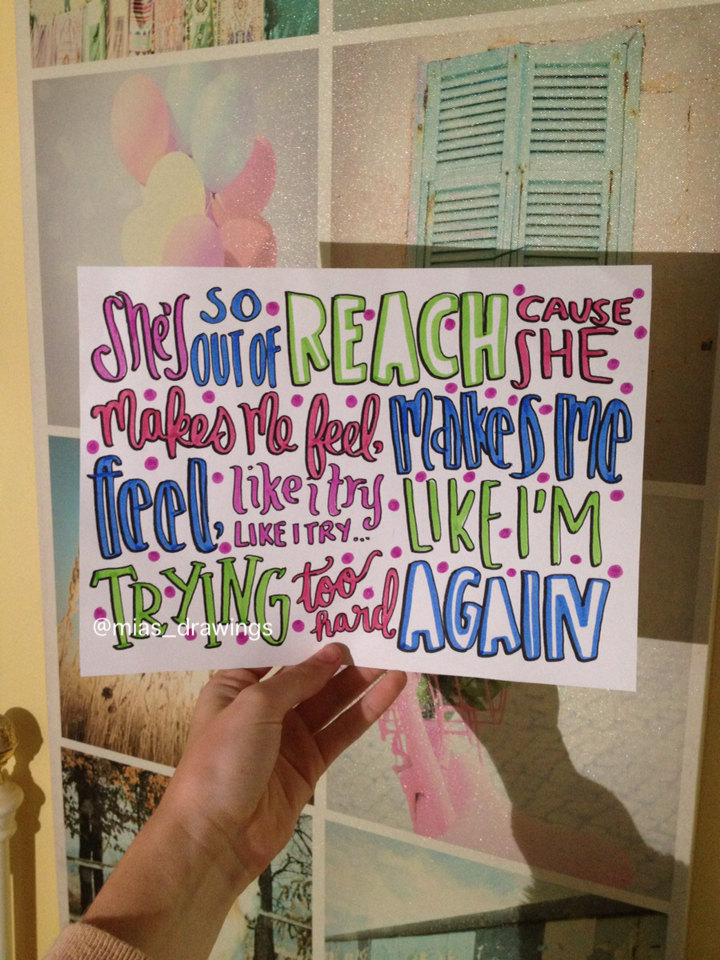 She's SO OUT OF REACH CAUSE SHE
makes me feel, makes me
feel, like i try LIKE I TRY... LIKE I'M
TRYING too hard AGAIN
@mias_drawings